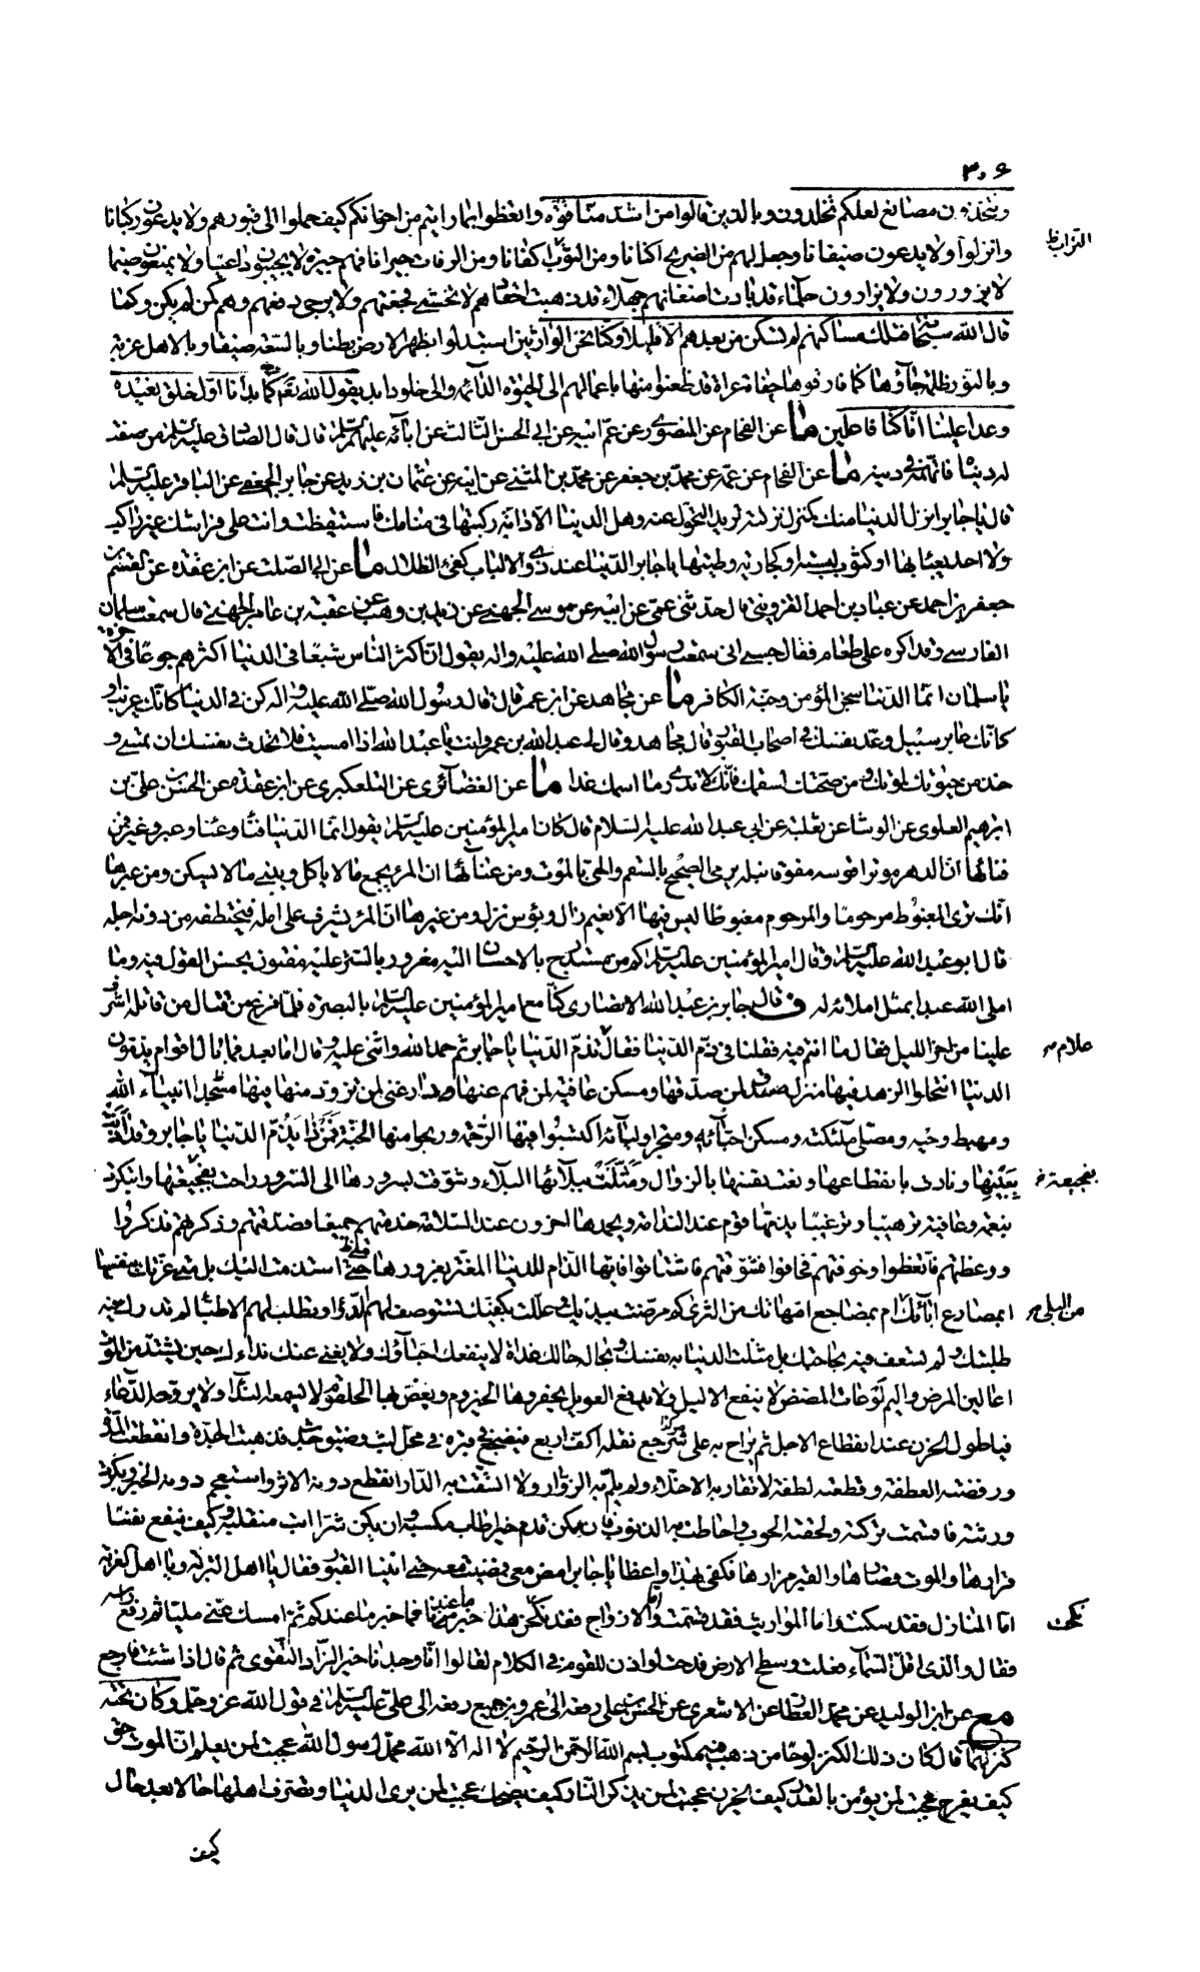 ٣٠٦
وتتخذون مصانع لعلكم تخلدون وبالذين قالوا من اشد منا قوة واتعظوا بما رايتم من اخوانكم كيف حملوا الى قبورهم ولا يدعون ركبانا
وانزلوا ولا يدعون ضيفانا وجعل لهم من الضريح اكنانا ومن التراب اكفانا ومن الرفات جيرانا فهم جيرة لا يجيبون داعيا ولا يمنعون ضيما
التراب ظ
لا يزورون ولا يزارون حلماء قد بادت اضغانهم جهلاء قد ذهبت احقادهم لا تخشى فجعتهم ولا يرجى دفعهم وهم كمن لم يكن وكما
قال الله سبحانه فتلك مساكنهم لم تسكن من بعدهم الا قليلا وكنا نحن الوارثين استبدلوا بظهر الارض بطنا وبالسعة ضيقا وبالاهل غربة
وبالنور ظلمة جاؤها كما فارقوها حفاة عراة قد ظعنوا منها باعمالهم الى الحيوة الدائمة والى خلود ابد يقول الله تعالى كما بدأنا اول خلق نعيده
وعدا علينا انا كنا فاعلين ما عن الفحام عن المنصوري عن عم ابيه عن ابي الحسن الثالث عن آبائه عليهم السلام قال قال الصادق عليه السلام من صفت
له دنياه فاتهمه في دينه ما عن الفحام عن عمه عن محمد بن جعفر عن محمد بن المثنى عن ابيه عن عثمان بن زيد عن جابر الجعفي عن الباقر عليه السلام
قال يا جابر انزل الدنيا منك كمنزل نزلته تريد التحول عنه وهل الدنيا الا دابة ركبتها في منامك فاستيقظت وانت على فراشك غير راكب
ولا احد يعبأ بها او كثوب لبسته او كجارية وطئتها يا جابر الدنيا عند ذوي الالباب كفئ الظلال ما عن ابي الصلت عن ابن عقدة عن القسم بن
جعفر بن احمد عن عباد بن احمد القزويني قال حدثني عمي عن ابيه عن موسى الجهني عن زيد بن وهب عن عقبة بن عامر الجهني قال سمعت سلمان
الفارسي وقد اكره على طعام فقال حسبي اني سمعت رسول الله صلى الله عليه واله يقول ان اكثر الناس شبعا في الدنيا اكثرهم جوعا في الآخرة
يا سلمان انما الدنيا سجن المؤمن وجنة الكافر ما عن مجاهد عن ابن عمر قال قال رسول الله صلى الله عليه واله كن في الدنيا كانك غريب او
كانك عابر سبيل وعد نفسك في اصحاب القبور قال مجاهد وقال لي عبد الله بن عمر وانت يا عبد الله اذا امسيت فلا تحدث نفسك ان تصبح و
خذ من حيوتك لموتك ومن صحتك لسقمك فانك لا تدري ما اسمك غدا ما عن الغضائري عن التلعكبري عن ابن عقدة عن الحسن بن علي بن
ابرهيم العلوي عن الوشا عن ثعلبة عن ابي عبد الله عليه السلام قال كان امير المؤمنين عليه السلام يقول انما الدنيا فناء وعناء وعبر وغير فمن
فنائها ان الدهر موتر قوسه مفوق نبله يرمي الصحيح بالسقم والحي بالموت ومن عنائها ان المرء يجمع ما لا ياكل ويبني ما لا يسكن ومن عبرها
انك ترى المغبوط مرحوما والمرحوم مغبوطا ليس فيها الا نعيم زال وبؤس نزل ومن غيرها ان المرء يشرف على امله فيختطفه من دونه اجله
قال ابو عبد الله عليه السلام وقال امير المؤمنين عليه السلام كم من مستدرج بالاحسان اليه مغرور بالستر عليه مفتون بحسن القول فيه وما
املى الله عبدا بمثل املائه له ف قال جابر بن عبد الله الانصاري كنا مع امير المؤمنين عليه السلام بالبصرة فلما فرغ من قتال من قاتله اشرف
علينا من اخر الليل فقال ما انتم فيه فقلنا في ذم الدنيا فقال تذم الدنيا يا جابر ثم حمد الله واثنى عليه وقال اما بعد فما بال اقوام يذمون
علام
الدنيا انتحلوا الزهد فيها الدنيا منزل صدق لمن صدقها ومسكن عافية لمن فهم عنها ودار غنى لمن تزود منها فيها مسجد انبياء الله
ومهبط وحيه ومصلى ملئكته ومسكن احبائه ومتجر اوليائه اكتسبوا فيها الرحمة وربحوا منها الجنة فمن ذا يذم الدنيا يا جابر وقد آذنت
ببينها ونادت بانقطاعها ونعت نفسها بالزوال ومثلت ببلائها البلاء وشوقت بسرورها الى السرور راحت بفجيعتها وابتكرت
بفجيعة
بنعمة وعافية ترهيبا وترغيبا يذمها قوم عند الندامة ويحمدها اخرون عند السلامة خدمتهم جميعا فصدقتهم وذكرتهم فذكروا
ووعظتهم فاتعظوا وخوفتهم فخافوا وشوقتهم فاشتاقوا فايها الذام للدنيا المغتر بغرورها متى استذمت اليك بل متى غرتك بنفسها
ابمصارع آبائك ام بمضاجع امهاتك من الثرى كم مرضت بيديك وعللت بكفيك تستوصف لهم الدواء وتطلب لهم الاطباء لم تدرك فيه
من البلى
طلبتك ولم تسعف فيه بحاجتك بل مثلت الدنيا به نفسك وبحاله حالك غداة لا ينفعك احباؤك ولا يغني عنك نداءك حين يشتد من الموت
اعالين المرض واليم لوعات المضض لا ينفع الاليل ولا يدفع العويل يحفز بها الحيزوم ويغص بها الحلقوم لا يسمعه النداء ولا يروحه الدعاء
فيا طول الحزن عند انقطاع الاجل ثم يراح به على شرجع تقله اكف اربع فيضجع في قبره في محل لبث وضيق جدث فذهبت الجدة وانقطعت المدة
ورفضته العطفة وقطعته اللطفة لا تقاربه الاخلاء ولم يلم به الزوار ولا اتسقت به الدار انقطع دونه الاثر واستعجم دونه الخبر وبكرت
ورثته فاقتسمت تركته ولحقه الحوب واحاطت به الذنوب فان يكن قدم خيرا طاب مكسبه وان يكن قدم شرا تب منقلبه وكيف ينفع نفسا
قرارها والموت قصارها والقبر مزارها فكفى بهذا واعظا يا جابر امض معي فمضيت معه حتى اتينا القبور فقال يا اهل التربة ويا اهل الغربة
اما المنازل فقد سكنت واما المواريث فقد قسمت واما الازواج فقد نكحن هذا خبر ما عندنا فما خبر ما عندكم ثم امسك عني مليا ثم رفع راسه
نكحت
فقال والذي اقل السماء فعلت وسطح الارض فدحت لو اذن للقوم في الكلام لقالوا انا وجدنا خير الزاد التقوى ثم قال اذا شئت فارجع
مع عن ابن الوليد عن محمد العطار عن الاشعري عن الحسن بن علي رفعه الى عمرو بن جميع رفعه الى علي عليه السلام في قول الله عز وجل وكان تحته
كنز لهما قال كان ذلك الكنز لوحا من ذهب فيه مكتوب بسم الله الرحمن الرحيم لا اله الا الله محمد رسول الله عجبت لمن يعلم ان الموت حق
كيف يفرح عجبت لمن يؤمن بالقدر كيف يحزن عجبت لمن يذكر النار كيف يضحك عجبت لمن يرى الدنيا وتصرف اهلها حالا بعد حال
كيف